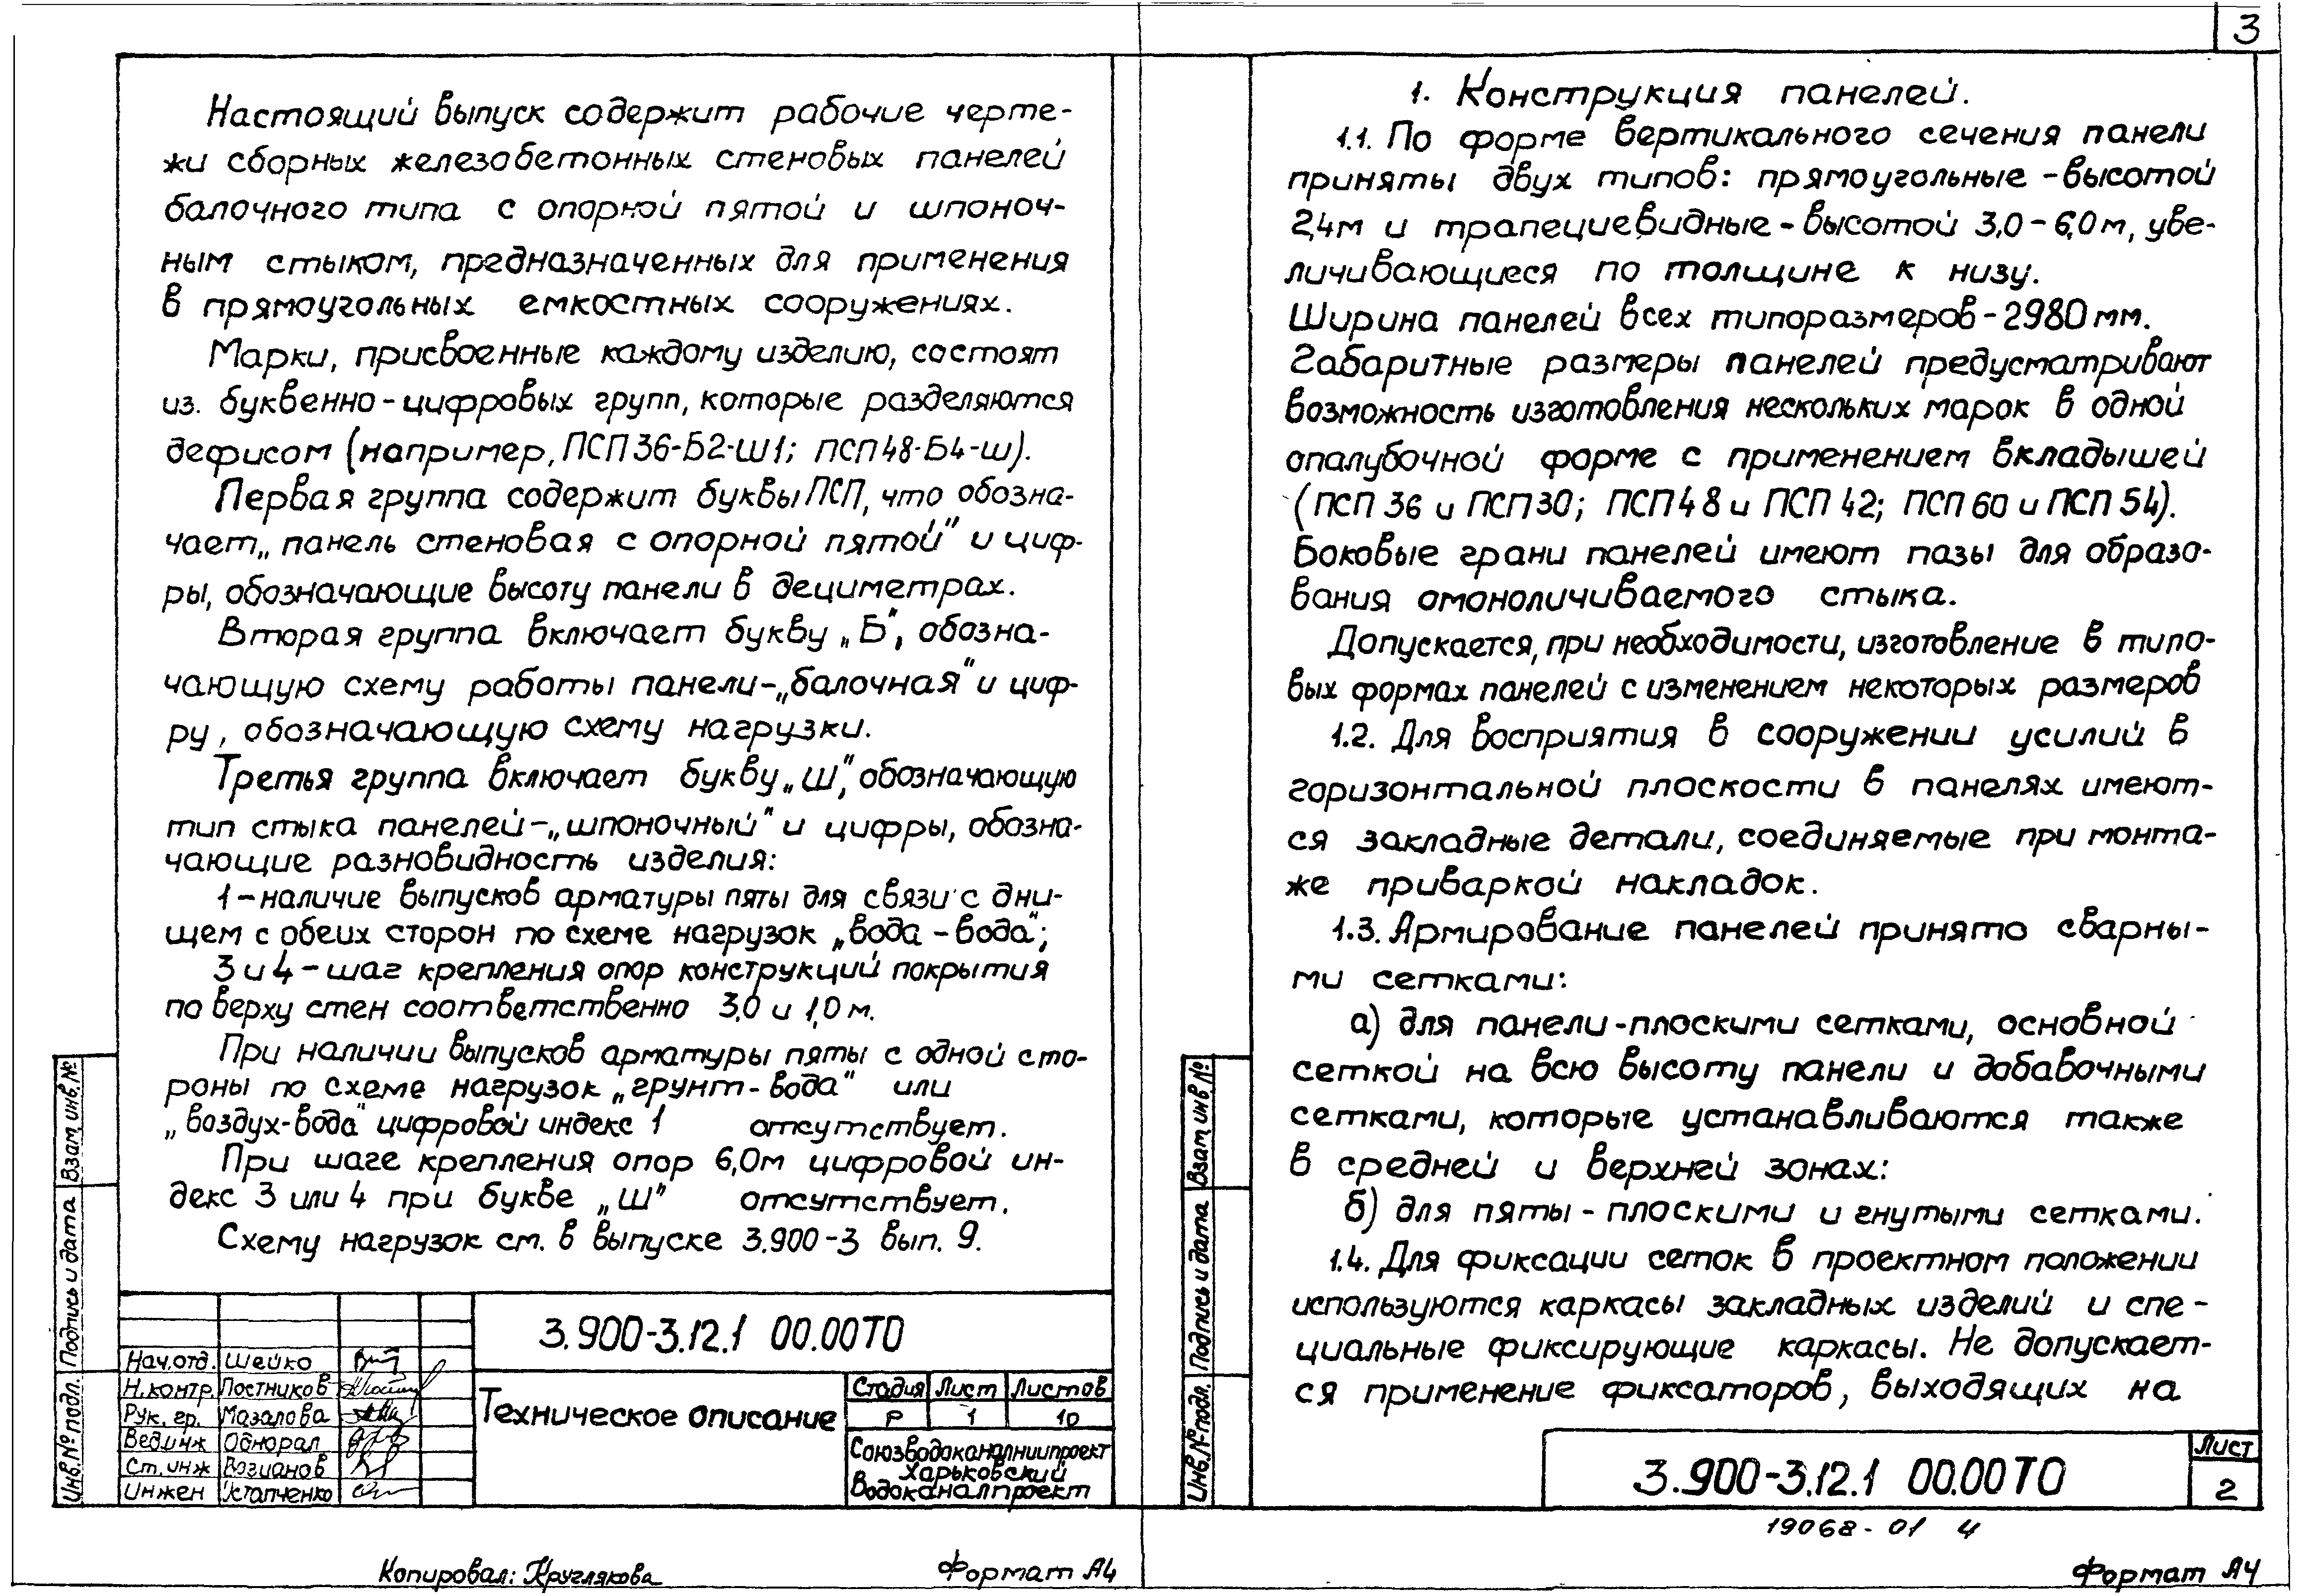 3
Настоящий выпуск содержит рабочие черте-
жи сборных железобетонных стеновых панелей
балочного типа с опорной пятой и шпоноч-
ным стыком, предназначенных для применения
в прямоугольных емкостных сооружениях.
Марки, присвоенные каждому изделию, состоят
из. буквенно-цифровых групп, которые разделяются
дефисом (например, ПСП36-Б2-Ш1; ПСП48-Б4-Ш).
Первая группа содержит буквы ПСП, что обозна-
чает „панель стеновая с опорной пятой" и циф-
ры, обозначающие высоту панели в дециметрах.
Вторая группа включает букву „Б", обозна-
чающую схему работы панели-„балочная" и циф-
ру, обозначающую схему нагрузки.
Третья группа включает букву „Ш", обозначающую
тип стыка панелей-„шпоночный" и цифры, обозна-
чающие разновидность изделия:
1-наличие выпусков арматуры пяты для связи с дни-
щем с обеих сторон по схеме нагрузок „вода-вода";
3 и 4-шаг крепления опор конструкций покрытия
по верху стен соответственно 3,0 и 1,0 м.
При наличии выпусков арматуры пяты с одной сто-
роны по схеме нагрузок „грунт-вода" или
„воздух-вода" цифровой индекс 1 отсутствует.
При шаге крепления опор 6,0м цифровой ин-
декс 3 или 4 при букве „Ш" отсутствует.
Схему нагрузок см. в выпуске 3.900-3 вып. 9.
Взам. инв. №
Подпись и дата
Инв. № подл.
3.900-3.12.1 00.00ТО
Нач.отд. Шейко
Н.контр. Постников
Рук. гр. Мазалова
Вед.инж Однорал
Ст. инж Возианов
Инжен Остапченко
Техническое описание
Стадия Лист Листов
Р 1 10
Союзводоканалниипроект
Харьковский
Водоканалпроект
Копировал: Круглякова
Формат А4
1. Конструкция панелей.
1.1. По форме вертикального сечения панели
приняты двух типов: прямоугольные -высотой
2,4м и трапециевидные-высотой 3,0-6,0м, уве-
личивающиеся по толщине к низу.
Ширина панелей всех типоразмеров-2980мм.
Габаритные размеры панелей предусматривают
возможность изготовления нескольких марок в одной
опалубочной форме с применением вкладышей
(ПСП 36 и ПСП30; ПСП48 и ПСП 42; ПСП 60 и ПСП 54).
Боковые грани панелей имеют пазы для образо-
вания омоноличиваемого стыка.
Допускается, при необходимости, изготовление в типо-
вых формах панелей с изменением некоторых размеров
1.2. Для восприятия в сооружении усилий в
горизонтальной плоскости в панелях имеют-
ся закладные детали, соединяемые при монта-
же приваркой накладок.
1.3. Армирование панелей принято сварны-
ми сетками:
а) для панели-плоскими сетками, основной
сеткой на всю высоту панели и добавочными
сетками, которые устанавливаются также
в средней и верхней зонах:
б) для пяты-плоскими и гнутыми сетками.
1.4. Для фиксации сеток в проектном положении
используются каркасы закладных изделий и спе-
циальные фиксирующие каркасы. Не допускает-
ся применение фиксаторов, выходящих на
Взам. инв №
Подпись и дата
Инв.№ подл.
3.900-3.12.1 00.00ТО
Лист
2
19068-01 4
Формат А4